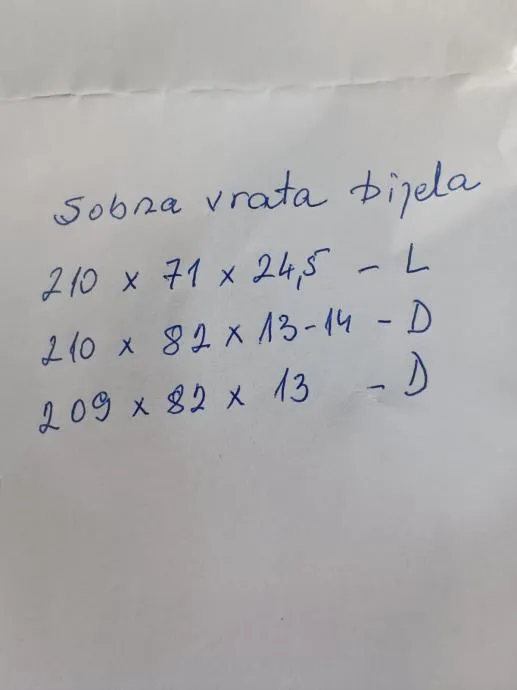 Sobna vrata bijela
210 x 71 x 24,5 - L
210 x 82 x 13-14 - D
209 x 82 x 13 - D